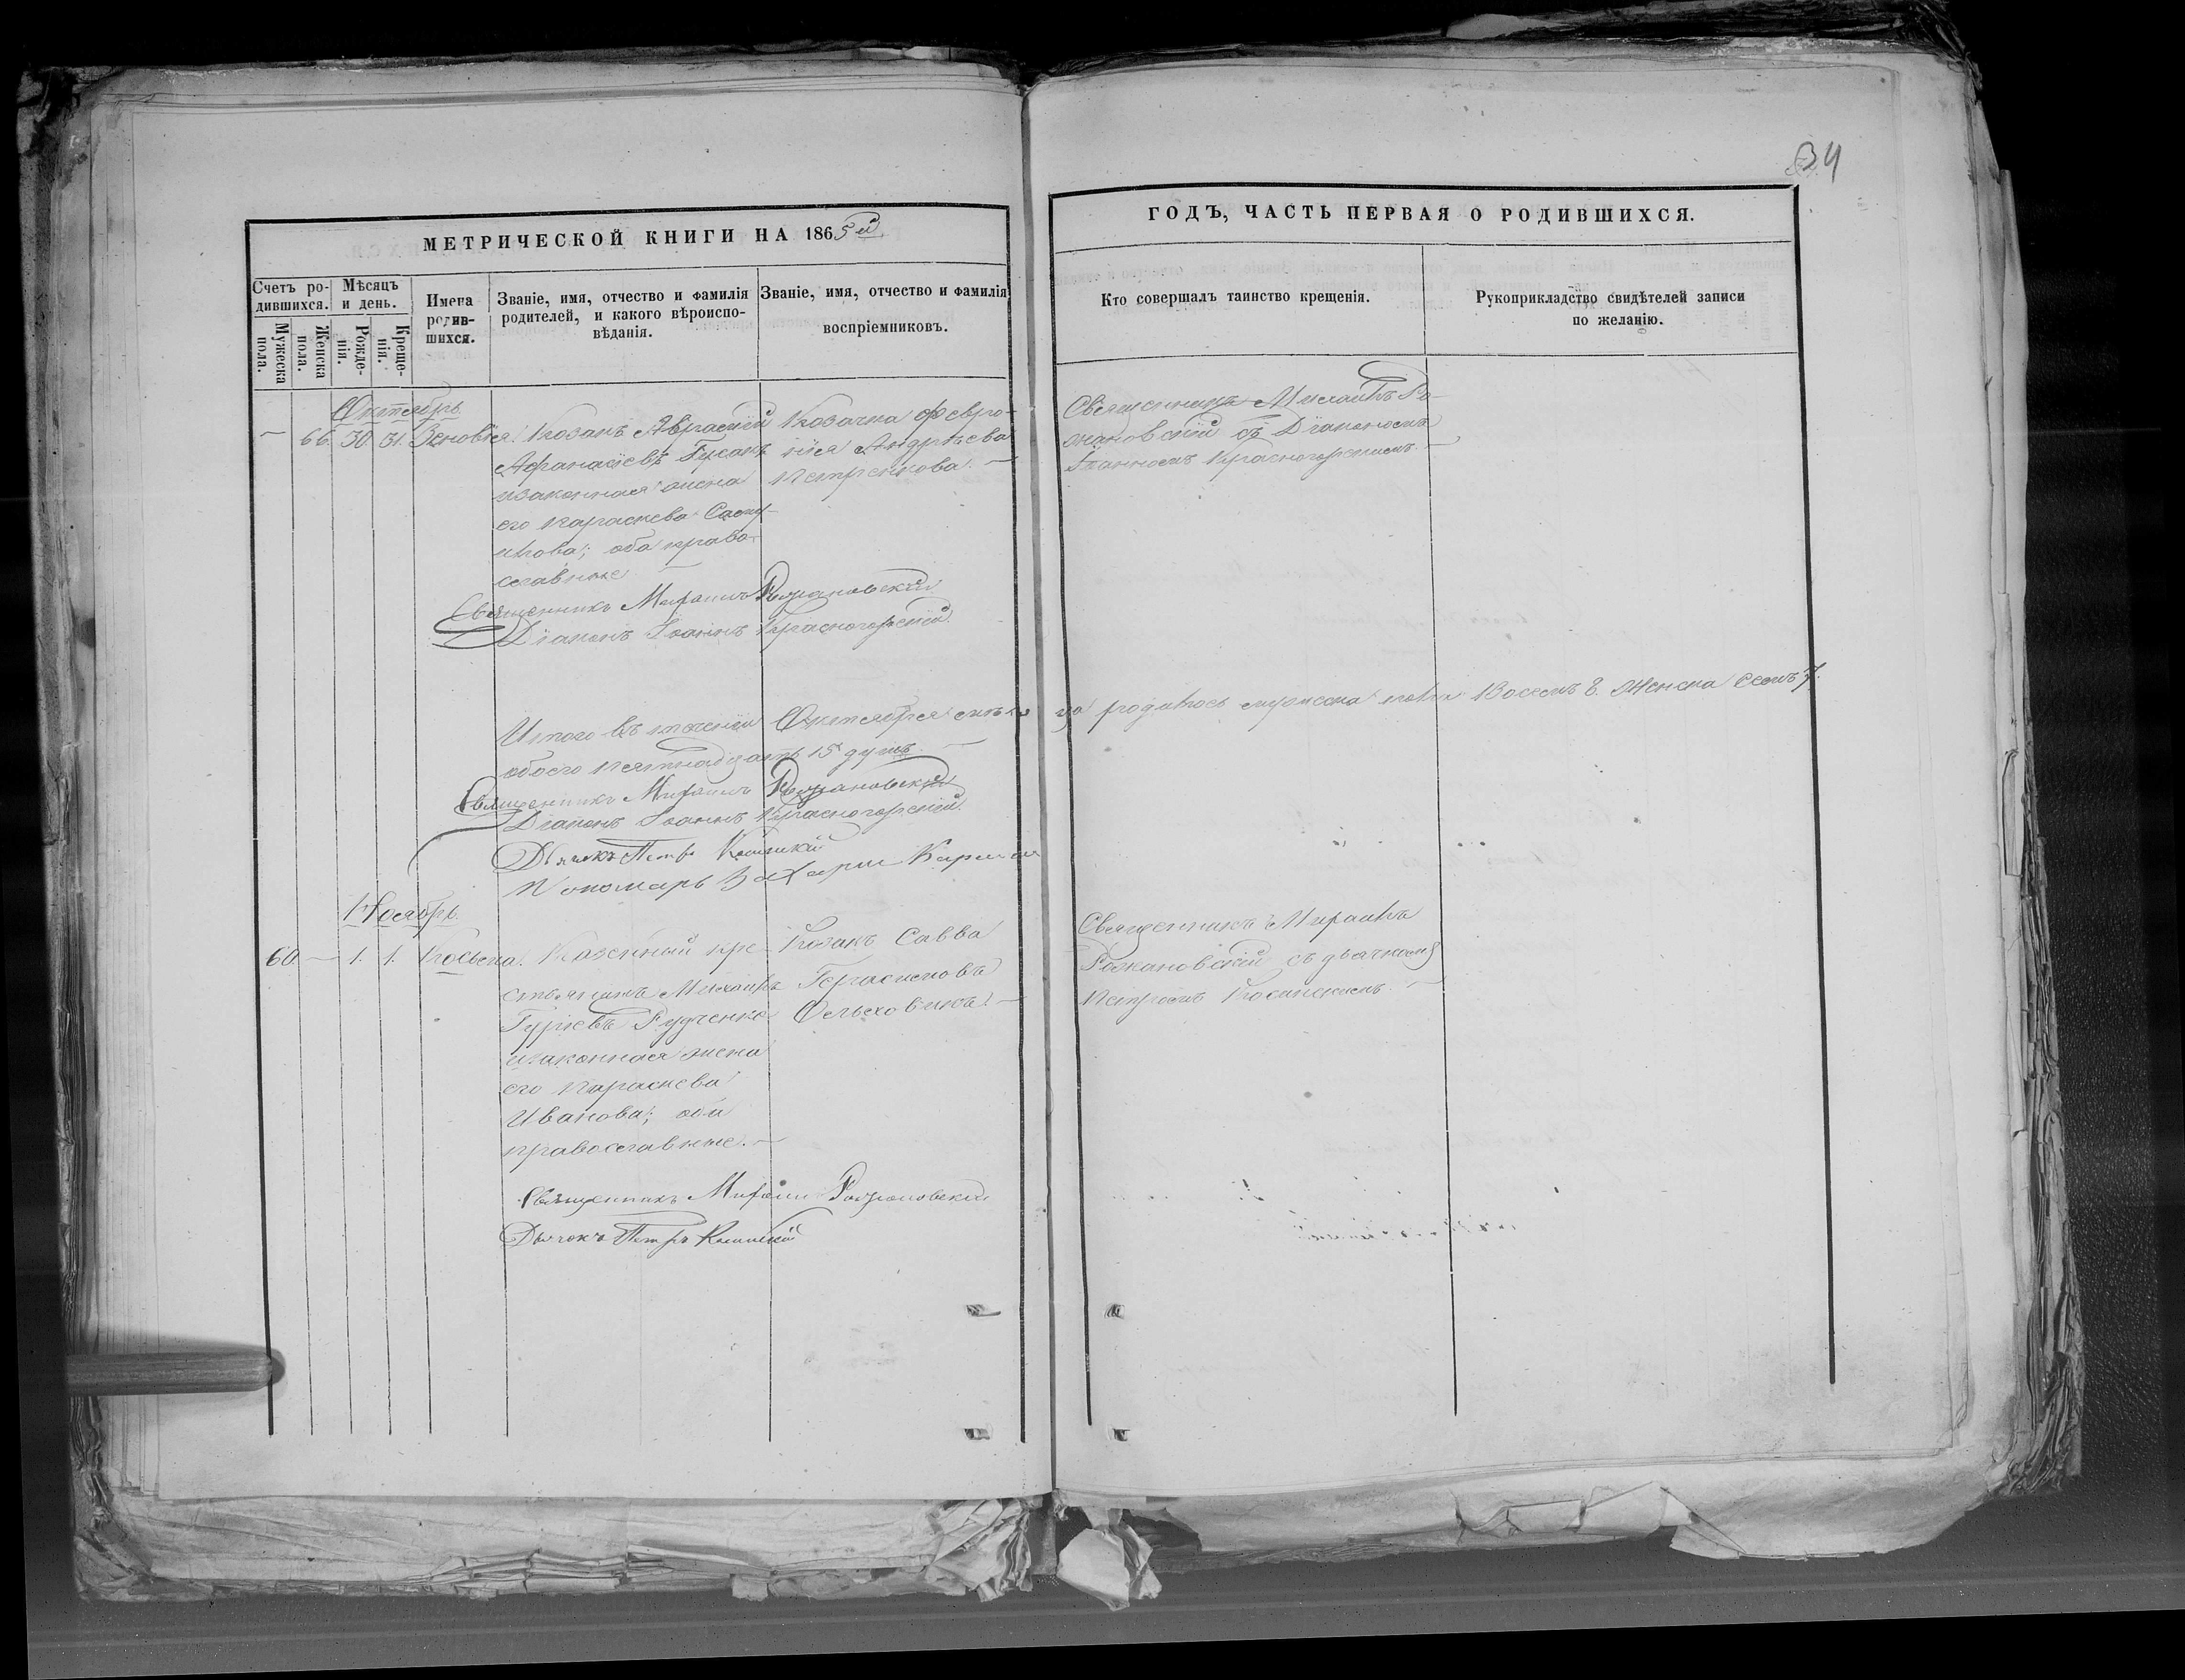 34
МЕТРИЧЕСКОЙ КНИГИ НА 1865й
ГОДЪ, ЧАСТЬ ПЕРВАЯ О РОДИВШИХСЯ.
Счетъ ро-
дившихся.
Мѣсяцъ
и день.
Мужеска
пола.
Женска
пола.
Рожде-
нія.
Креще-
нія.
Имена
родив-
шихся.
Званіе, имя, отчество и фамилія
родителей, и какого вѣроиспо-
вѣданія.
Званіе, имя, отчество и фамилія
воспріемниковъ.
Кто совершалъ таинство крещенія.
Рукоприкладство свидѣтелей записи
по желанію.
Октябрь.
— 66. 30. 31. Зеновія.
Козакъ
Афанасіевъ
изаконная жена
его Параскева
оба право-
славные
Козачка Февро-
нія Андрѣева
Петренкова. —
Священникъ Михаилъ Ро-
жановскій съ Діакономъ
Іоанномъ Красногорскимъ. —
Священникъ Михаилъ Рожановскій
Діаконъ Іоаннъ Красногорскій.
Итого въ теченіи Октября мѣся-
ца родилось мужеска пола Восемь 8. Женска Семь 7.
обоего Пятнадцать 15 душъ. —
Священникъ Михаилъ Рожановскій
Діаконъ Іоаннъ Красногорскій.
Дьячокъ Петръ
Пономарь Захарій
Ноябрь.
60. — 1. 1. Косьма.
Казенный кре-
стьянинъ Михаилъ
Гуріевъ Рудченко
изаконная жена
его Параскева
Иванова; оба
православные. —
Козакъ Савва
Герасимовъ
Ольховикъ. —
Священникъ Михаилъ
Рожановскій съ дьячкомъ
Петромъ
Священникъ Михаилъ Рожановскій
Дьячокъ Петръ